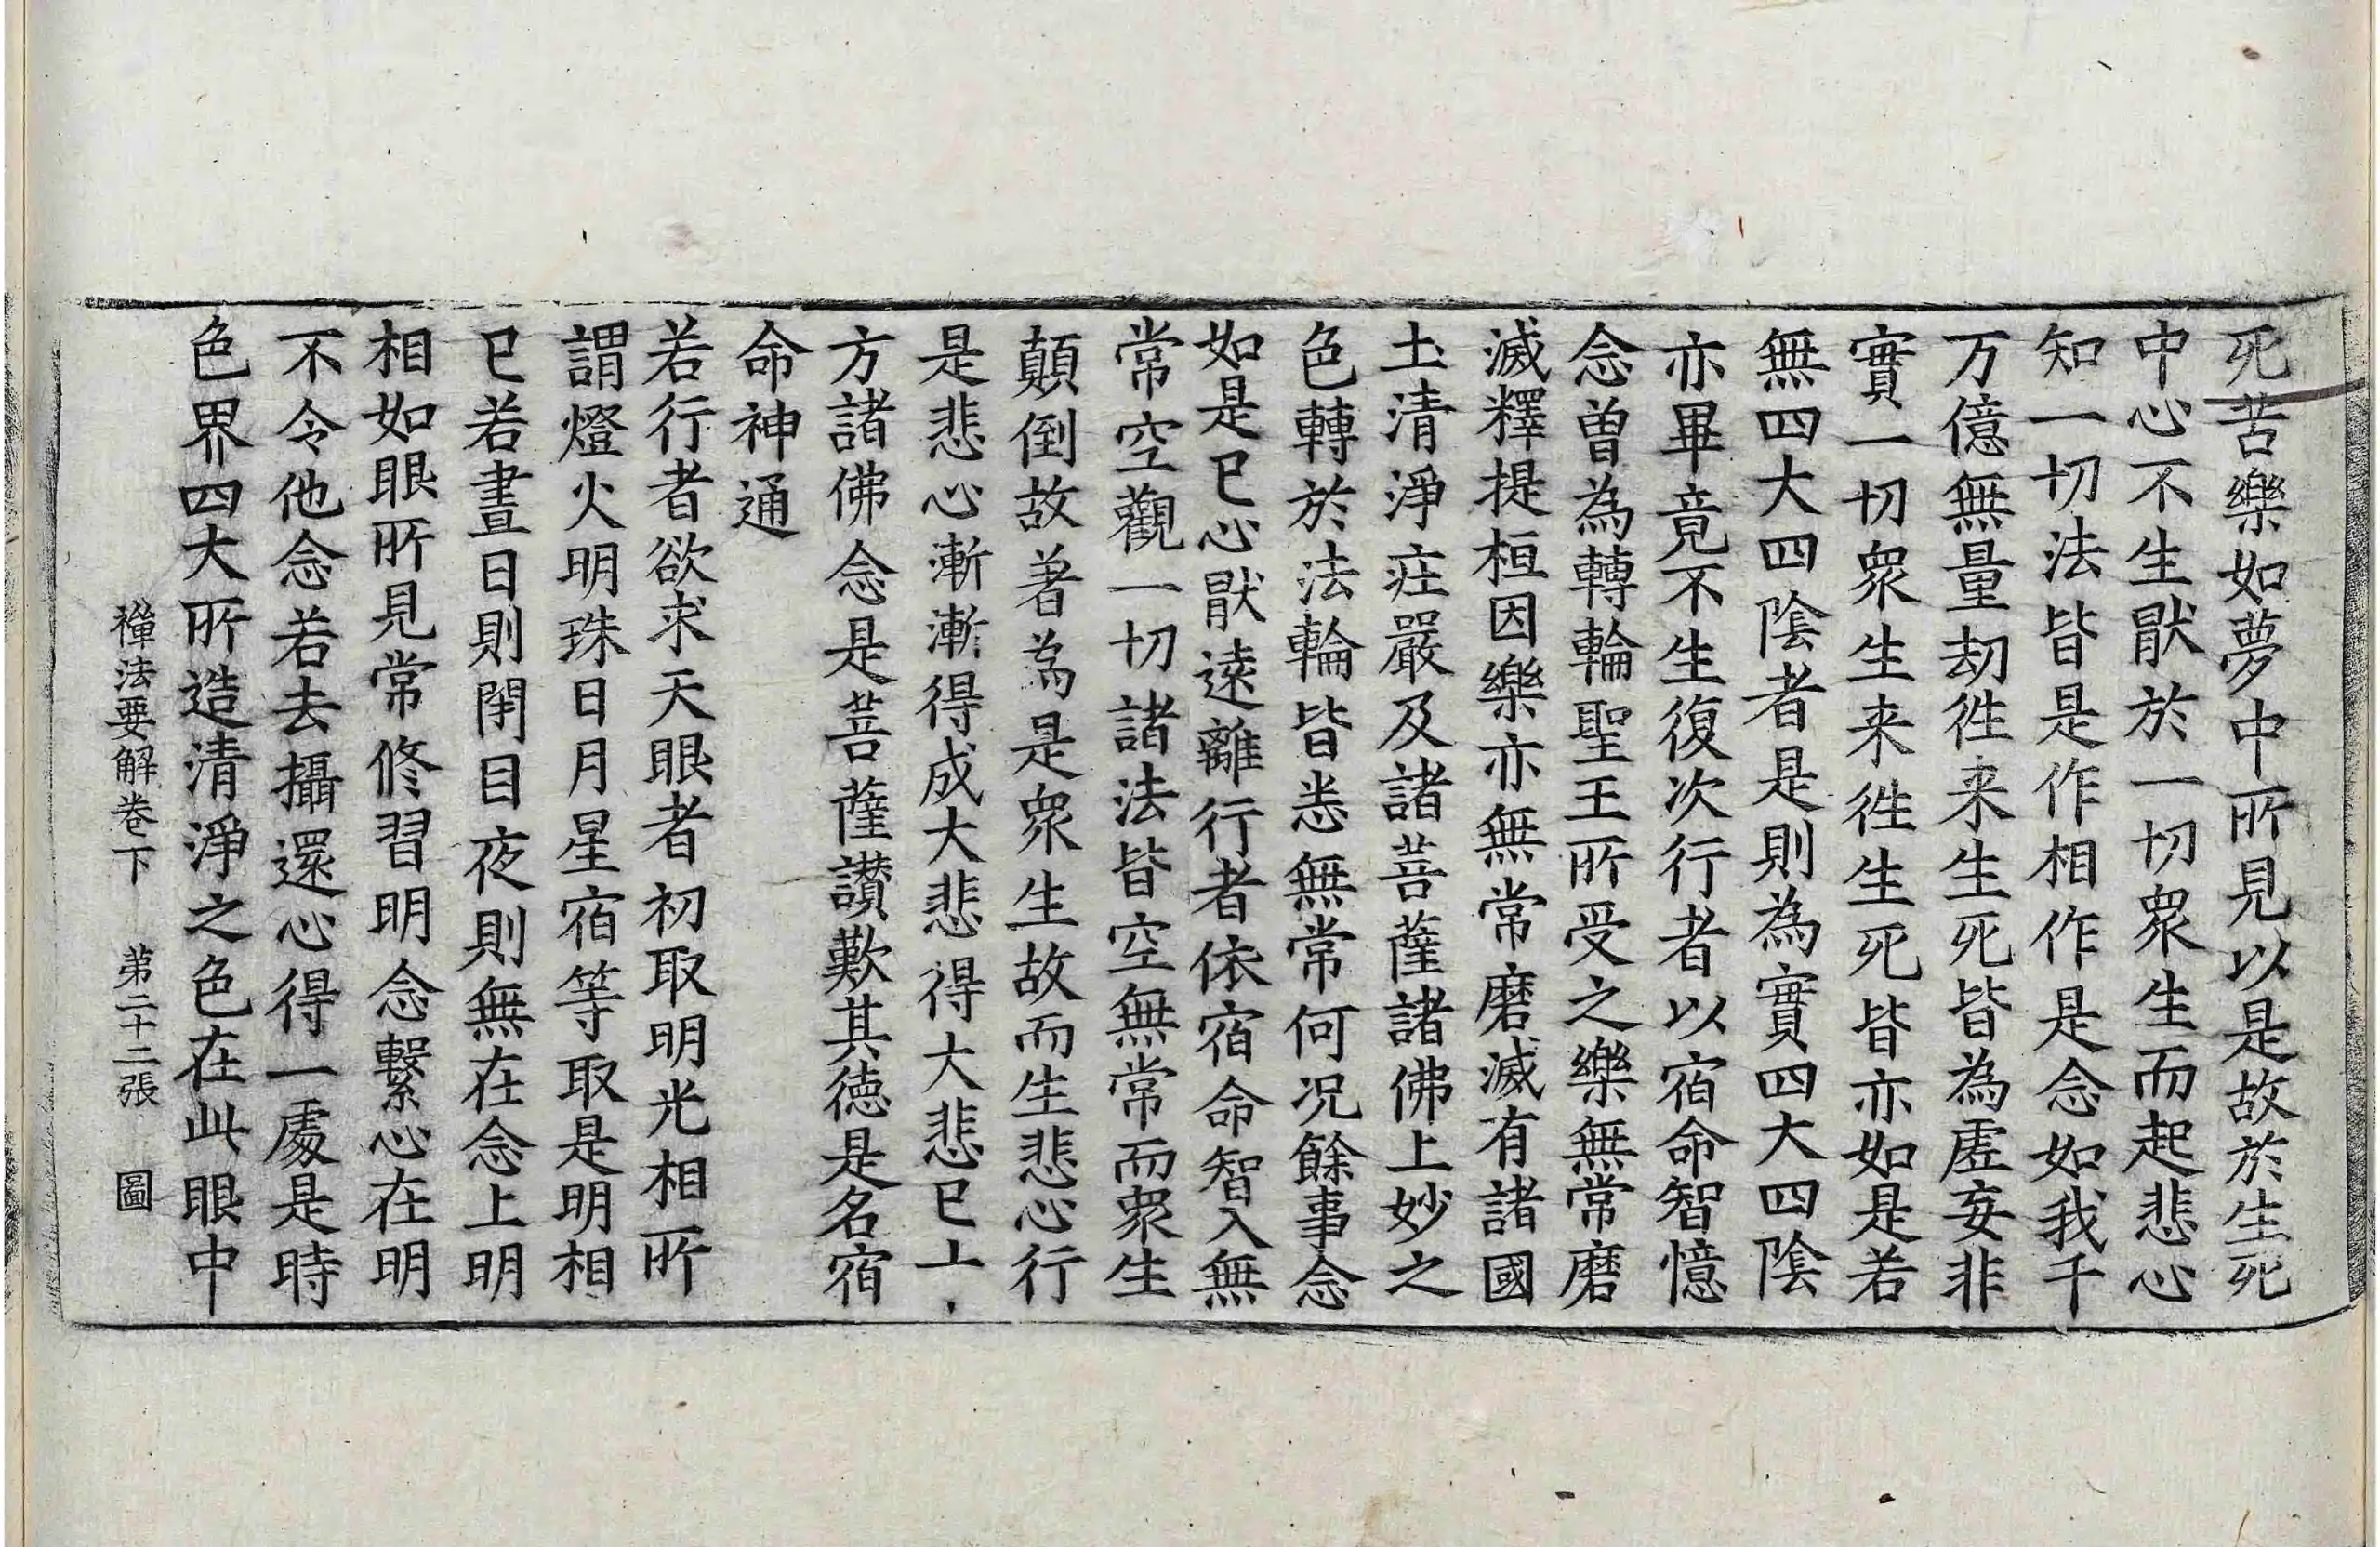 死苦樂如夢中所見以是故於生死
中心不生猒於一切眾生而起悲心
知一切法皆是作相作是念如我千
万億無量劫徃来生死皆為虛妄非
實一切眾生来徃生死皆亦如是若
無四大四陰者是則為實四大四陰
亦畢竟不生復次行者以宿命智憶
念曾為轉輪聖王所受之樂無常磨
滅釋提桓因樂亦無常磨滅有諸國
土清淨莊嚴及諸菩薩諸佛上妙之
色轉於法輪皆悉無常何况餘事念
如是已心猒遠離行者依宿命智入無
常空觀一切諸法皆空無常而眾生
顛倒故著為是眾生故而生悲心行
是悲心漸漸得成大悲得大悲已
方諸佛念是菩薩讃歎其德是名宿
命神通
若行者欲求天眼者初取明光相所
謂燈火明珠日月星宿等取是明相
已若晝日則閇目夜則無在念上明
相如眼所見常修習明念繫心在明
不令他念若去攝還心得一處是時
色界四大所造清淨之色在此眼中
禪法要解卷下 第二十二張 圖